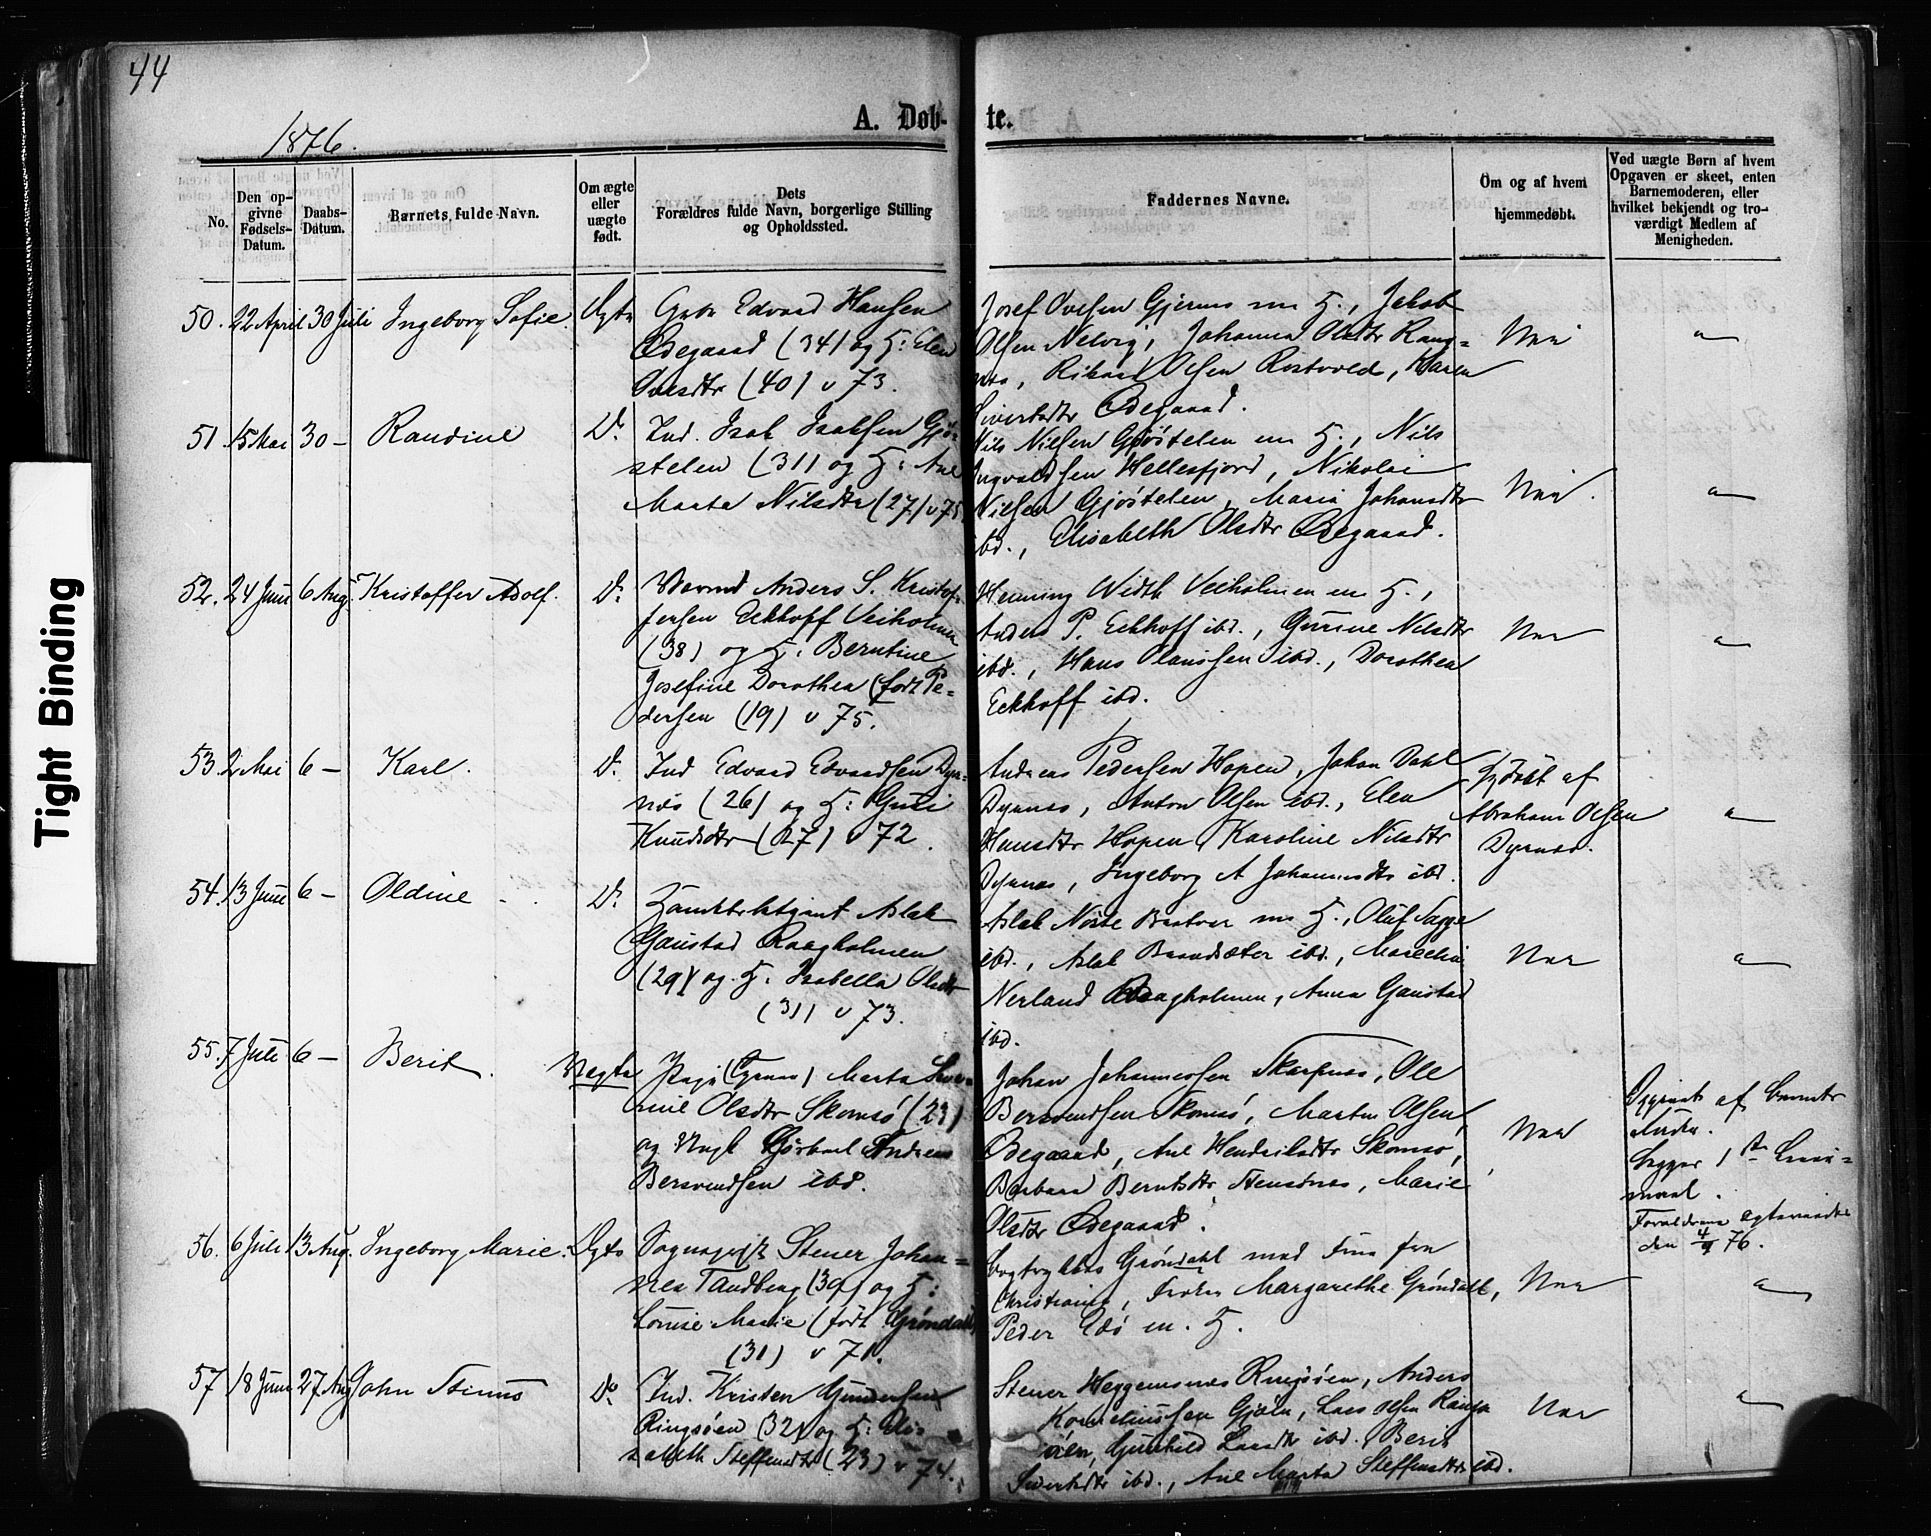 44
A. Døb-
te.
1876.
No.
Den op-
givne
Fødsels-
Datum.
Daabs-
Datum.
Barnets fulde Navn.
Om ægte
eller
uægte
født.
Dets
Forældres fulde Navn, borgerlige Stilling
og Opholdssted.
Faddernes Navne.
Om og af hvem
hjemmedøbt.
Ved uægte Børn af hvem
Opgaven er skeet, enten
Barnemoderen, eller
hvilket bekjendt og tro-
værdigt Medlem af
Menigheden.
50. 22 April 30 Juli Ingeborg Sofie. Ægte
Edvard Hansen
Ødegaard (34) og H: Elen
(40) v 73.
Josef Gjernes m H., Jakob
Olsen Nelvig, Johanna Olsdtr Ram-
nes, Rikard Olsen Rostvold, Karen
Sivertsdtr Ødegaard.
Nei
"
51. 15 Mai 30 – Randine Do.
Ind. Isak Isaksen Gjø-
stelen (31) og H: Ane
Marta Nilsdtr (27) v 75
Nils Nilsen Gjøstelen m H., Nils
Ingvaldsen Hellesfjord, Nikolai
Nilsen Gjøstelen, Maria Johansdtr
ibd., Elisabeth Olsdtr Ødegaard.
Nei.
"
52. 24 Juni 6 Aug. Kristoffer Adolf. Do.
Anders S. Kristof-
fersen Eckhoff Veiholmen
(38) og H: Berntine
Josefine Dorothea (født Pe-
dersen (19) v 75.
Henning Width Veiholmen m H.,
Anders P. Eckhoff ibd., Gurine Nilsdtr
ibd., Hans Clausen ibd., Dorothea
Eckhoff ibd.
Nei
"
53. 2 Mai 6 – Karl. Do.
Ind Edvard Edvardsen Dyr-
nes (26) og H: Guri
Knudsdtr (27) v 72.
Andreas Pedersen Hopen, Johan Dahl
Dyrnes, Anton Olsen ibd., Elen
Hansdtr Hopen, Karoline Nilsdtr
Dyrnes, Ingeborg A Johannesdtr ibd.
Hjdøbt af
Abraham Olsen
Dyrnes.
"
54. 13 Juni 6 – Oldine Do.
Aslak
Gaustad Raagholmen
(29) og H. Isabella Olsdtr
(31) v 73.
Aslak Nørte m H., Oluf Sagge
ibd., Aslak Brandsæter ibd., Marcelie
Nerland Raagholmen, Anna Gaustad
ibd.
Nei
"
55. 7 Juli 6 – Berit. Uægte
Pige (Tyrnes) Marta
Olsdtr Skomsø (23)
og Ungk Andreas
Bersvendsen ibd.
Johan Johannessen Skarpnes, Ole
Bersvendsen Skomsø, Marten Olsen,
Ødegaard, Ane Hendriksdtr Skomsø,
Barbara Berntsdtr Stensønes, Marie
Olsdtr Ødegaard.
Nei
Opgivet af Barnets
Fader.
begges 1ste Leier-
maal.
Forældrene ægteviede
den 4/9 76.
56. 6 Juli 13 Aug. Ingeborg Marie. Ægte
Sognepræst Stener Johan-
nes Tandberg (39) og H:
Lovise Marie (født Grøndahl)
(31) v 71.
Bogtrykker Grøndahl med Frue fra
Christiania, Frøken Margarethe Grøndahl,
Peder Edø m. H.
Nei
"
57. 18 Juni 27 Aug John Stinus Do.
Ind. Kristen Gundersen
Ringsøen (32) og H: Eli-
sabeth Steffensdtr (23) v 74.
Stener Heggemsnes Ringsøen, Anders
Korneliussen Gjøln, Lars Olsen Rings-
øen, Gunhild Larsdtr ibd. Berit
Sivertsdtr ibd., Ane Marta Steffensdtr ibd.
Nei
"
Tight Binding